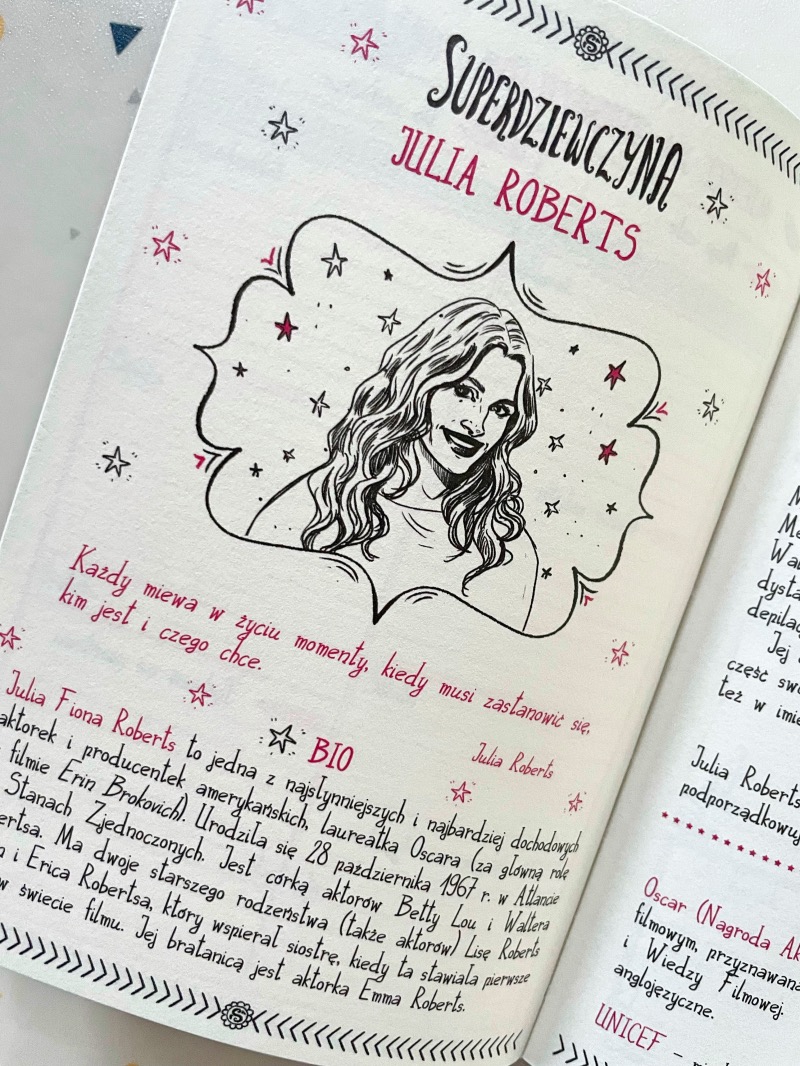 S
SUPERDZIEWCZYNA
JULIA ROBERTS
Każdy miewa w życiu momenty, kiedy musi zastanowić się,
kim jest i czego chce.
Julia Roberts
BIO
Julia Fiona Roberts to jedna z najsłynniejszych i najbardziej dochodowych
aktorek i producentek amerykańskich, laureatka Oscara (za główną rolę
filmie Erin Brokovich). Urodziła się 28 października 1967 r. w Atlancie
Stanach Zjednoczonych. Jest córką aktorów Betty Lou i Waltera
ertsa. Ma dwoje starszego rodzeństwa (także aktorów) Lisę Roberts
i Erica Robertsa, który wspierał siostrę, kiedy ta stawiała pierwsze
w świecie filmu. Jej bratanicą jest aktorka Emma Roberts.
S
M
Me
Wal
dysta
depilac
Jej
część sw
też w imie
Julia Roberts
podporządkowuj
Oscar (Nagroda Ak
filmowym, przyznawana
i Wiedzy Filmowej.
anglojęzyczne.
UNICEF –